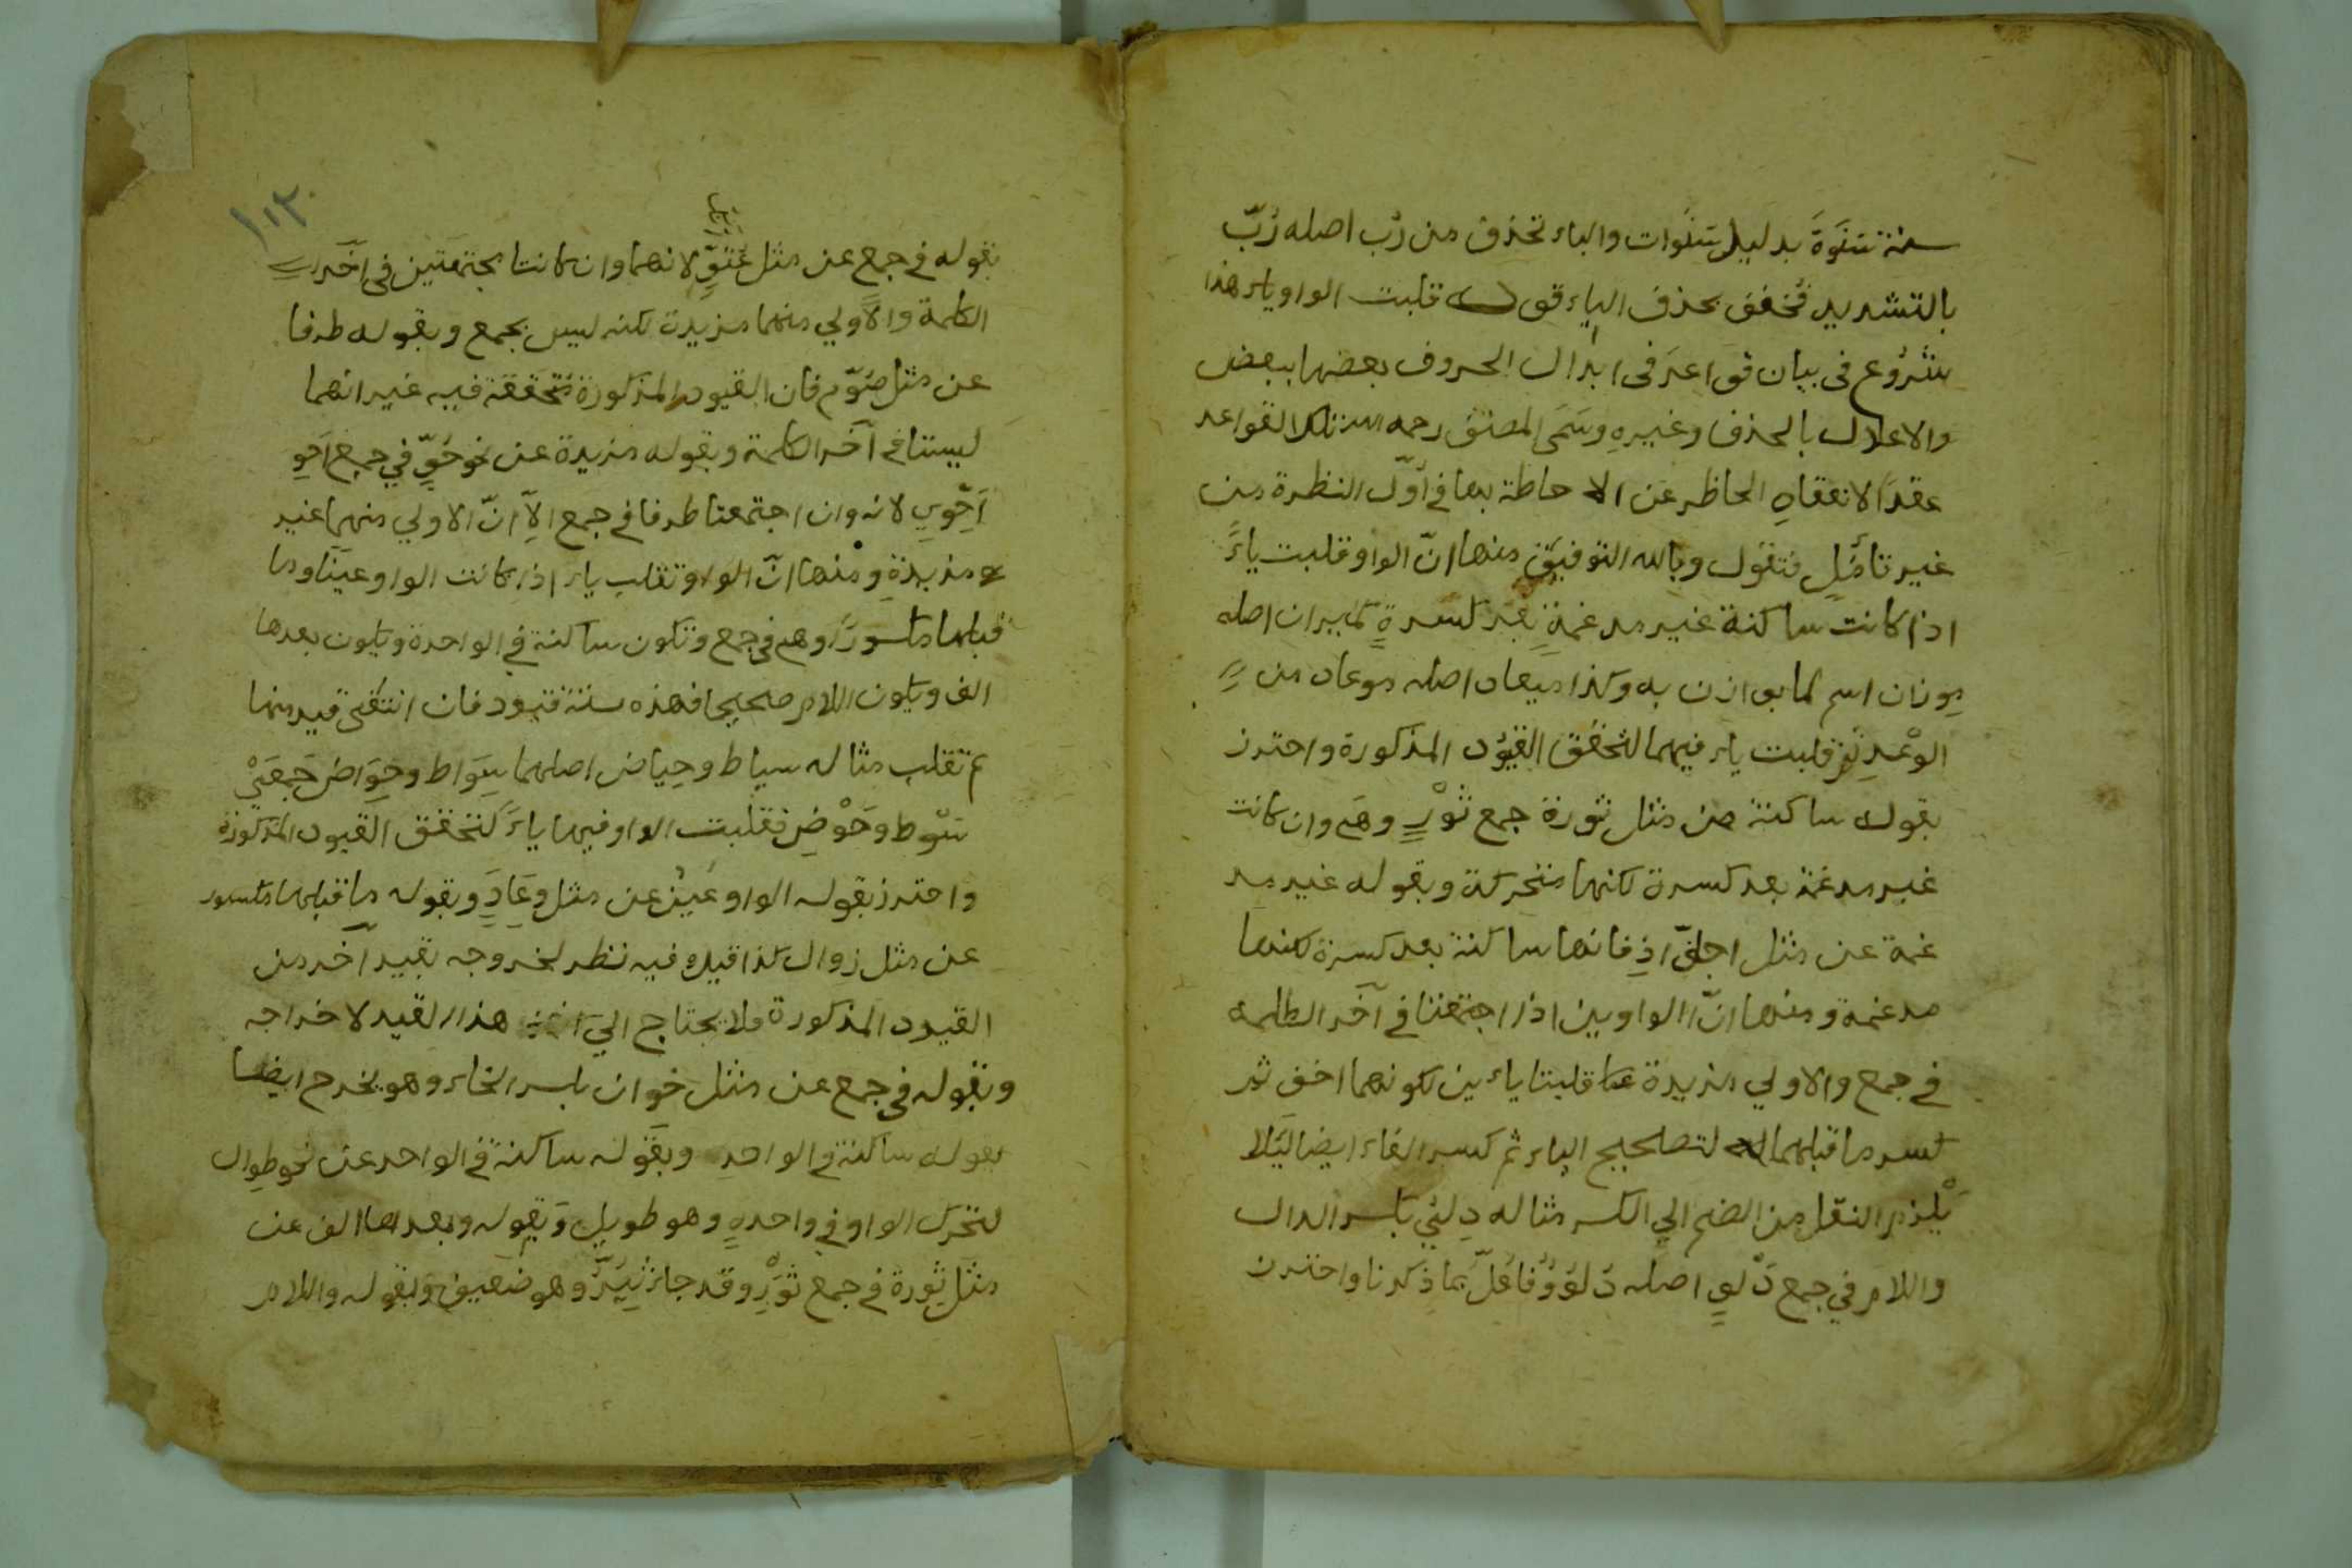 سنة سَنَوَةَ بدليل سَنَوات والباء تحذف من رُب اصله رُبّ
بالتشديد فخفف بحذف الباء قوله قلبت الواو ياء هذا
شروع في بيان قواعد في ابدال الحروف بعضها ببعض
والاعلال بالحذف وغيرهِ وسَمَى المصنف رحمه الله تلك القواعد
عقدًا لانعقاده الحاظر عن الاحاطة بها في اوّل النظرة من
غير تاَمُّلٍ فنقول وبالله التوفيق منها انّ الواو قلبت ياءً
اذا كانت ساكنة غير مدغمةٍ بعد كسرةٍ كميزان اصله
مِوزان اسم لما يوازن به وكذا ميعاد اصله موعاد من
الوعْدِ قلبت ياء فيهما لتحقق القيود المذكورة واحترز
بقوله ساكنة عن مثل ثورة جمع ثَوْرٍ وهي وان كانت
غير مدغمة بعد كسرة لكنها متحركة وبقوله غير مد
غمة عن مثل اجلوّاذ فانها ساكنة بعد كسرة لكنها
مدغمة ومنها انّ الواوين اذا اجتمعتا في آخر الكلمة
في جمع والاولي مزيدة قلبتا ياءين لكونهما اخف ثم
كسر ما قبلهما لتصحيح الياء ثم كسر الفاء ايضا لئلا
يَلْزم النقل من الضم الي الكسر مثاله دِلِيّ بكسر الدال
واللام في جمع دَلْوٍ اصله دُلُوْوٌ فاُعِلَّ بما ذكرنا واحترز
١١٢
بقوله في جمع عن مثل عُتُوٍّ لانهما وان كانتا مجتمعتين في آخر
الكلمة والاولي منهما مزيدة لكنه ليس بجمع وبقوله طرفا
عن مثل صُوّم فان القيود المذكورة متحققة فيه غير انهما
ليستا في آخر الكلمة وبقوله مزيدة عن نحو حُوٍّ في جمع اَحْوِ
اَحْوِيِ لانه وان اجتمعتا طرفا في جمع الّا انّ الاولي منهما غير
مزيدةٍ ومنها انّ الواو تقلب ياء اذا كانت الواو عينًا وما
قبلها مكسورًا وهي في جمع وتكون ساكنة في الواحدة ويكون بعدها
الف ويكون اللام صحيحا فهذه ستة قيود فان انتفى قيد منها
لم تقلب مثاله سياط وحِياض اصلهما سِوَاط وحِوَاض جَمعَيْ
سَوْط وحَوْضٍ فقلبت الواو فيهما ياءً لتحقق القيود المذكورة
واحترز بقوله الواو عَين عن مثل وِعَادٍ وبقوله ما قبلها مكسور
عن مثل زوال كذا قيل وفيه نظر لخروجه بقيد آخر من
القيود المذكورة فلا يحتاج الي هذا القيد لاخراجه
وبقوله في جمع عن مثل خِوان بكسر الخاء وهو يخرج ايضا
بقوله ساكنة في الواحدِ وبقوله ساكنة في الواحد عن نحو طِوال
لتحرك الواو في واحدهٍ وهو طويل وبقوله وبعدها الف عن
مثل ثِورة في جمع ثَوْرٍ وقد جاء ثِيَرٌ وهو ضعيف وبقوله واللام